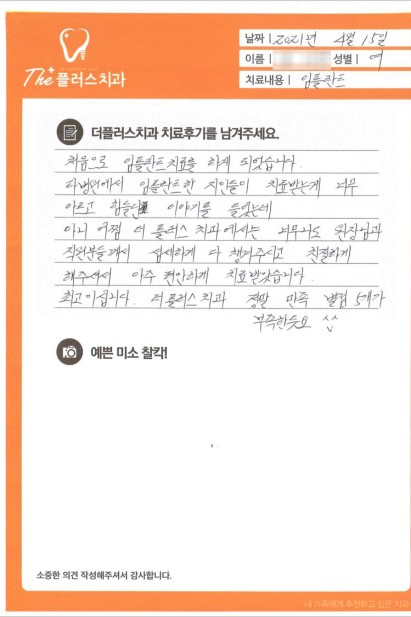 The 플러스치과
날짜 | 2021년 4월 15일
이름 | 성별 | 여
치료내용 | 임플란트
더플러스치과 치료후기를 남겨주세요.
처음으로 임플란트치료를 하게 되었습니다.
타병원에서 임플란트한 지인들이 치료받는게 너무
아프고 힘들단 이야기를 들었는데
아니 어쩜 더 플러스 치과에서는 너무나도 원장님과
직원분들께서 섬세하게 다 챙겨주시고 친절하게
해주셔서 아주 편안하게 치료받았습니다.
최고이십니다. 더플러스치과 정말 만족 별점 5개가
부족한듯요 ^^
예쁜 미소 찰칵!
소중한 의견 작성해주셔서 감사합니다.
내 가족에게 추천하고 싶은 치과